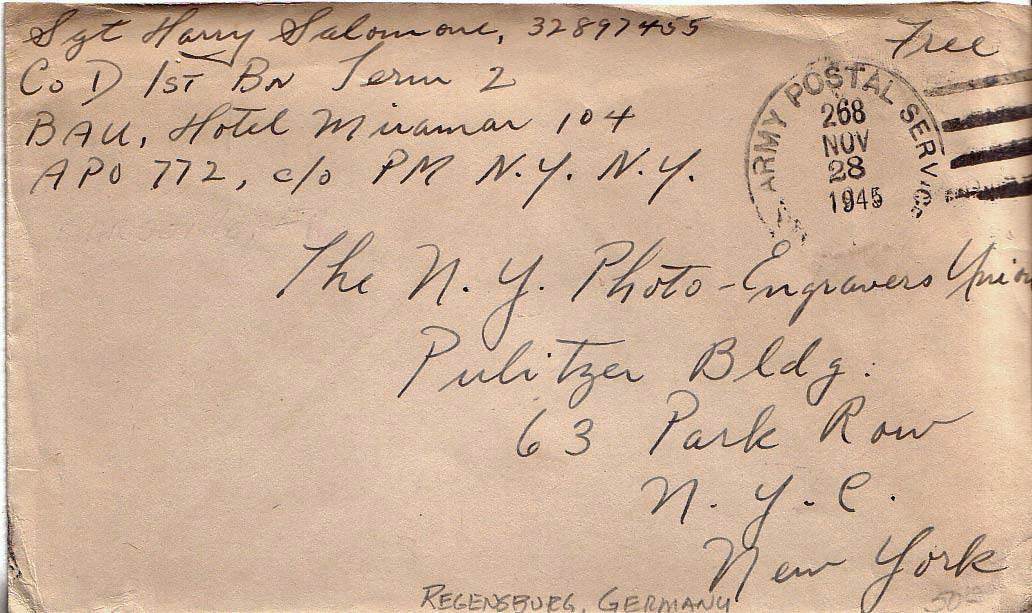 Sgt Harry Salomone, 32897455
Co D 1ST BN Term 2
BAU, Hotel Miramar 104
APO 772, c/o PM N.Y. N.Y.
Free
ARMY POSTAL SERVICE
268
NOV
28
1945
The N.Y. Photo-Engravers Union
Pulitzer Bldg.
63 Park Row
N.Y.C.
New York
REGENSBURG, GERMANY